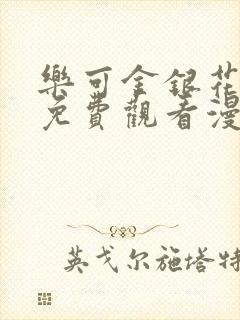 樂可金銀花
免費觀看漫
英戈尔施塔特